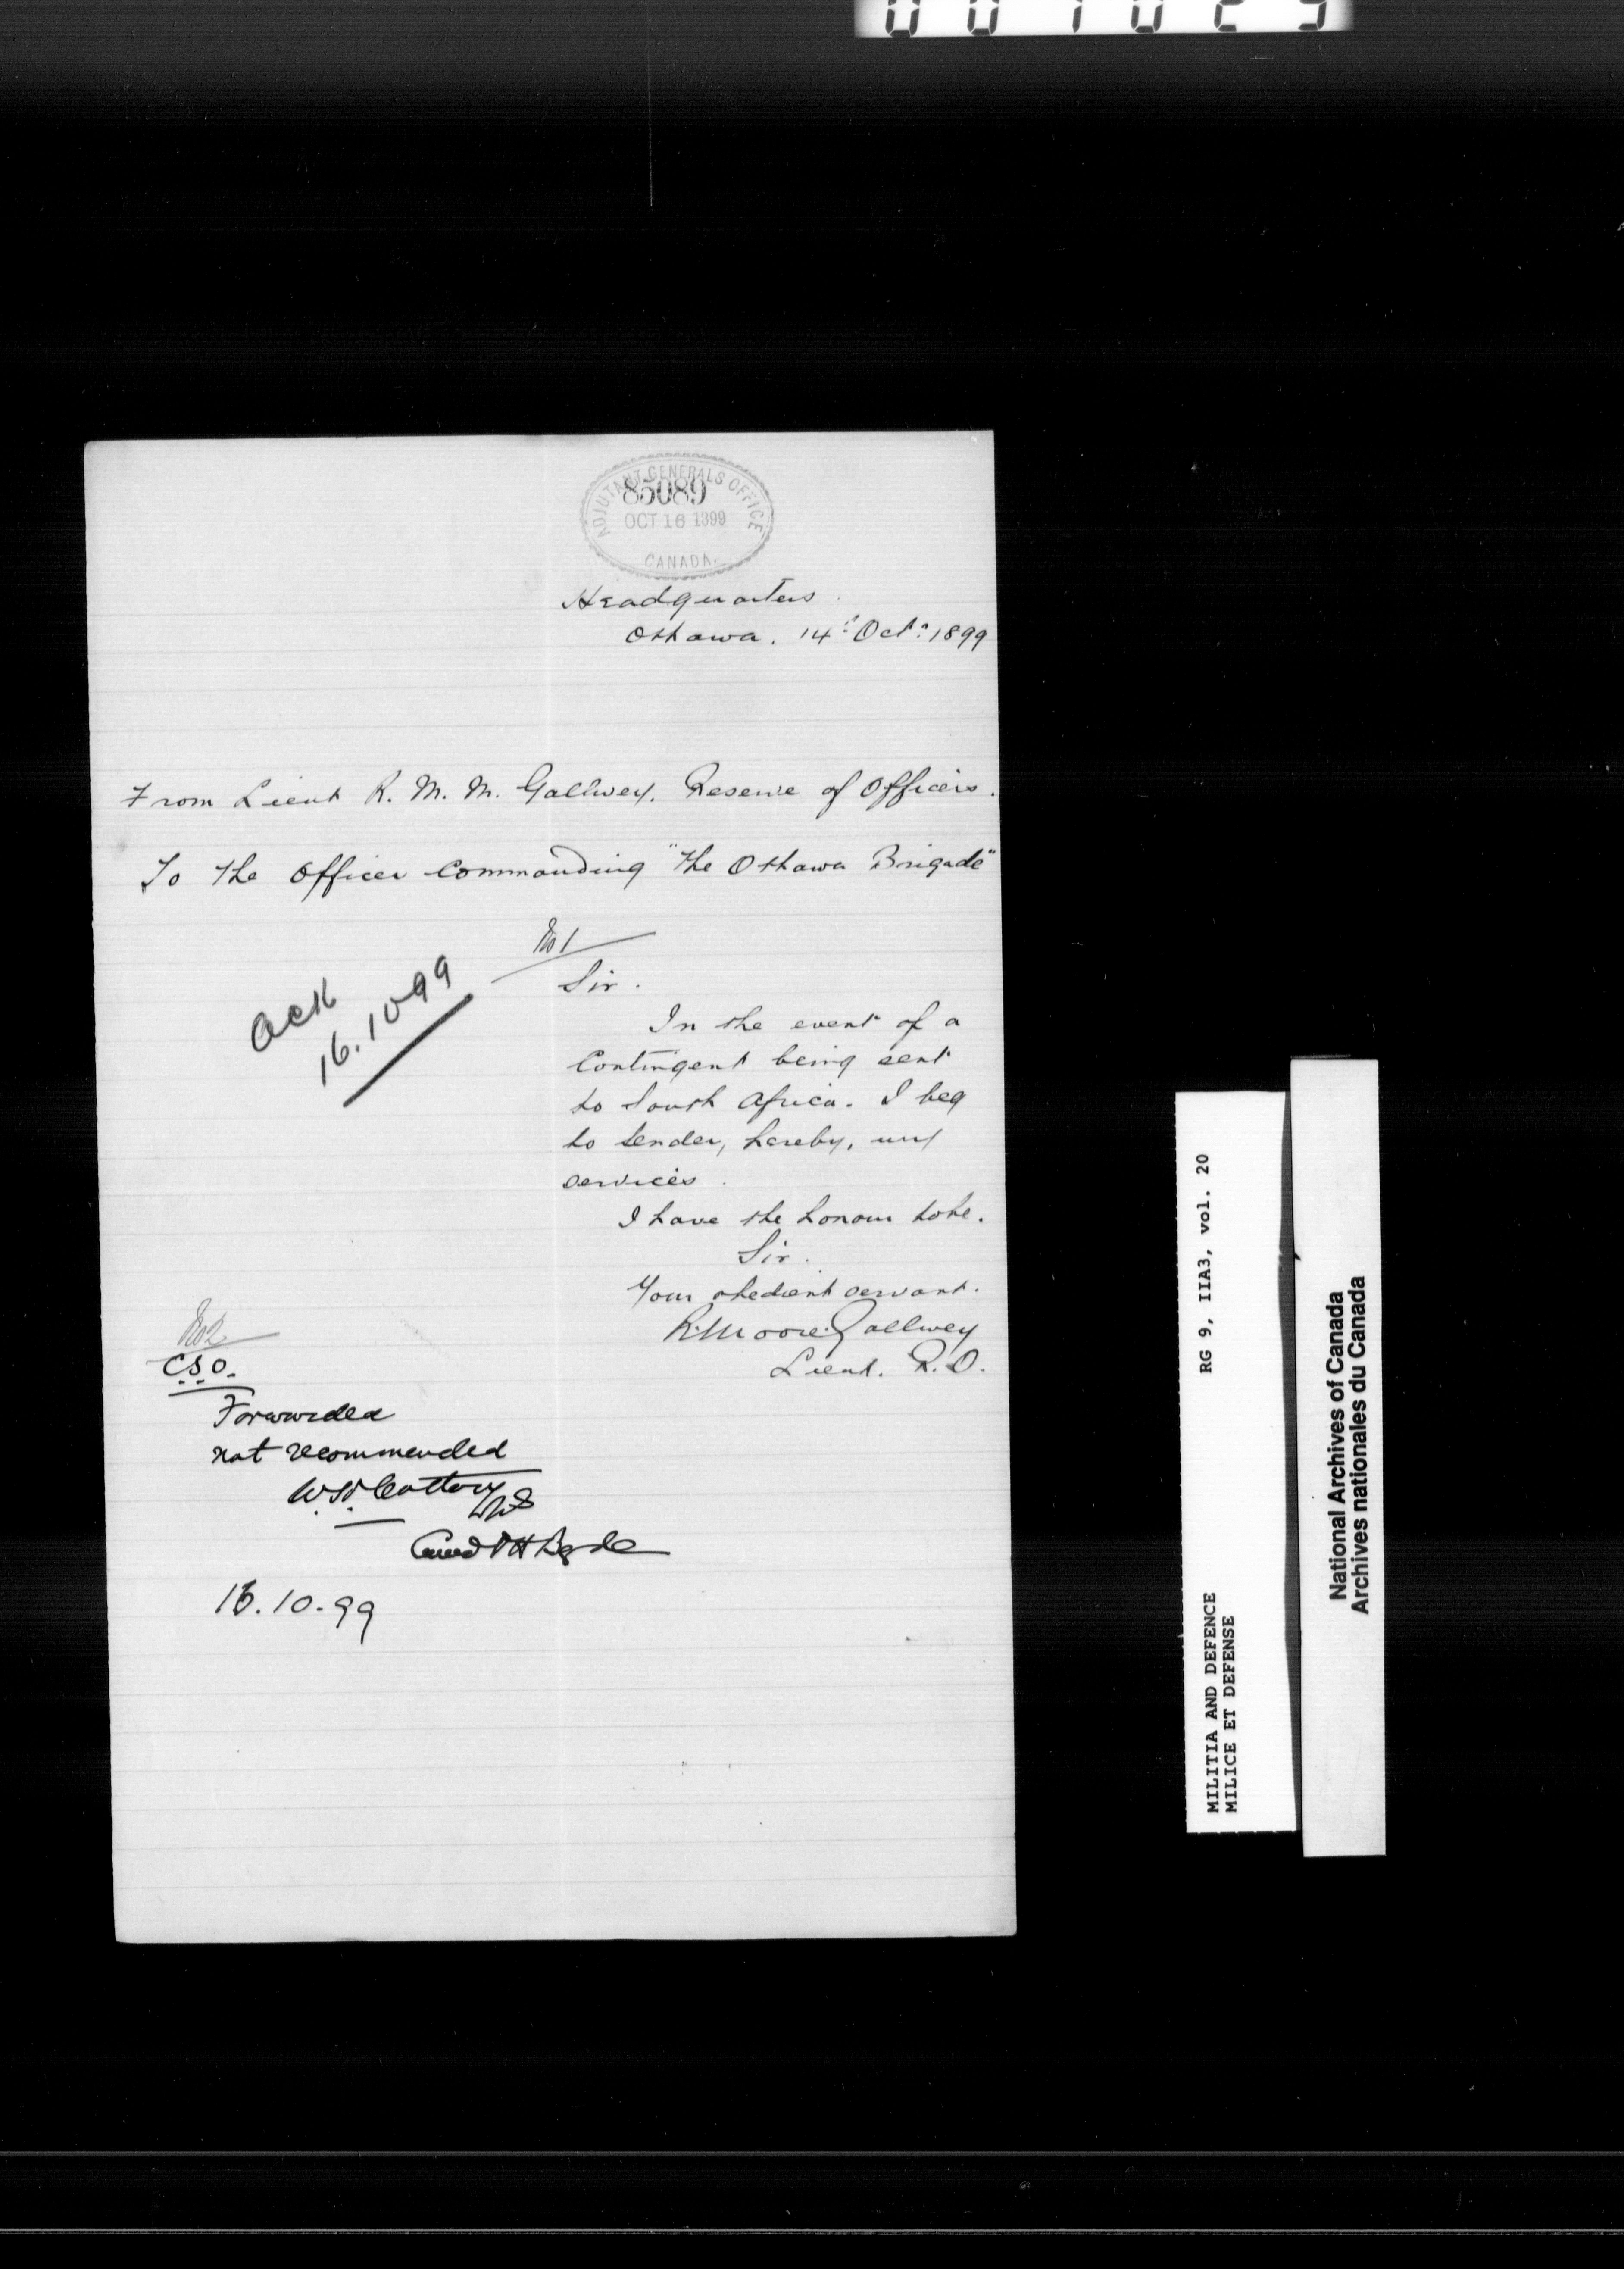 ADJUTANT GENERALS OFFICE
85089
OCT 16 1899
CANADA.
Headquarters.
Ottawa. 14th Octr 1899
From Lieut R. M. M. Gallwey. Reserve of Officers.
To the Officer Commanding "The Ottawa Brigade"
No 1
Ack
16.10.99
Sir.
In the event of a
Contingent being sent
to South Africa. I beg
to tender, hereby, my
services.
I have the honour to be.
Sir.
Your obedient servant.
R. Moore. Gallwey
Lieut. R.O.
No 2
C.S.O.
Forwarded
not recommended
16.10.99
RG 9, IIA3, vol. 20
MILITIA AND DEFENCE
MILICE ET DEFENSE
National Archives of Canada
Archives nationales du Canada